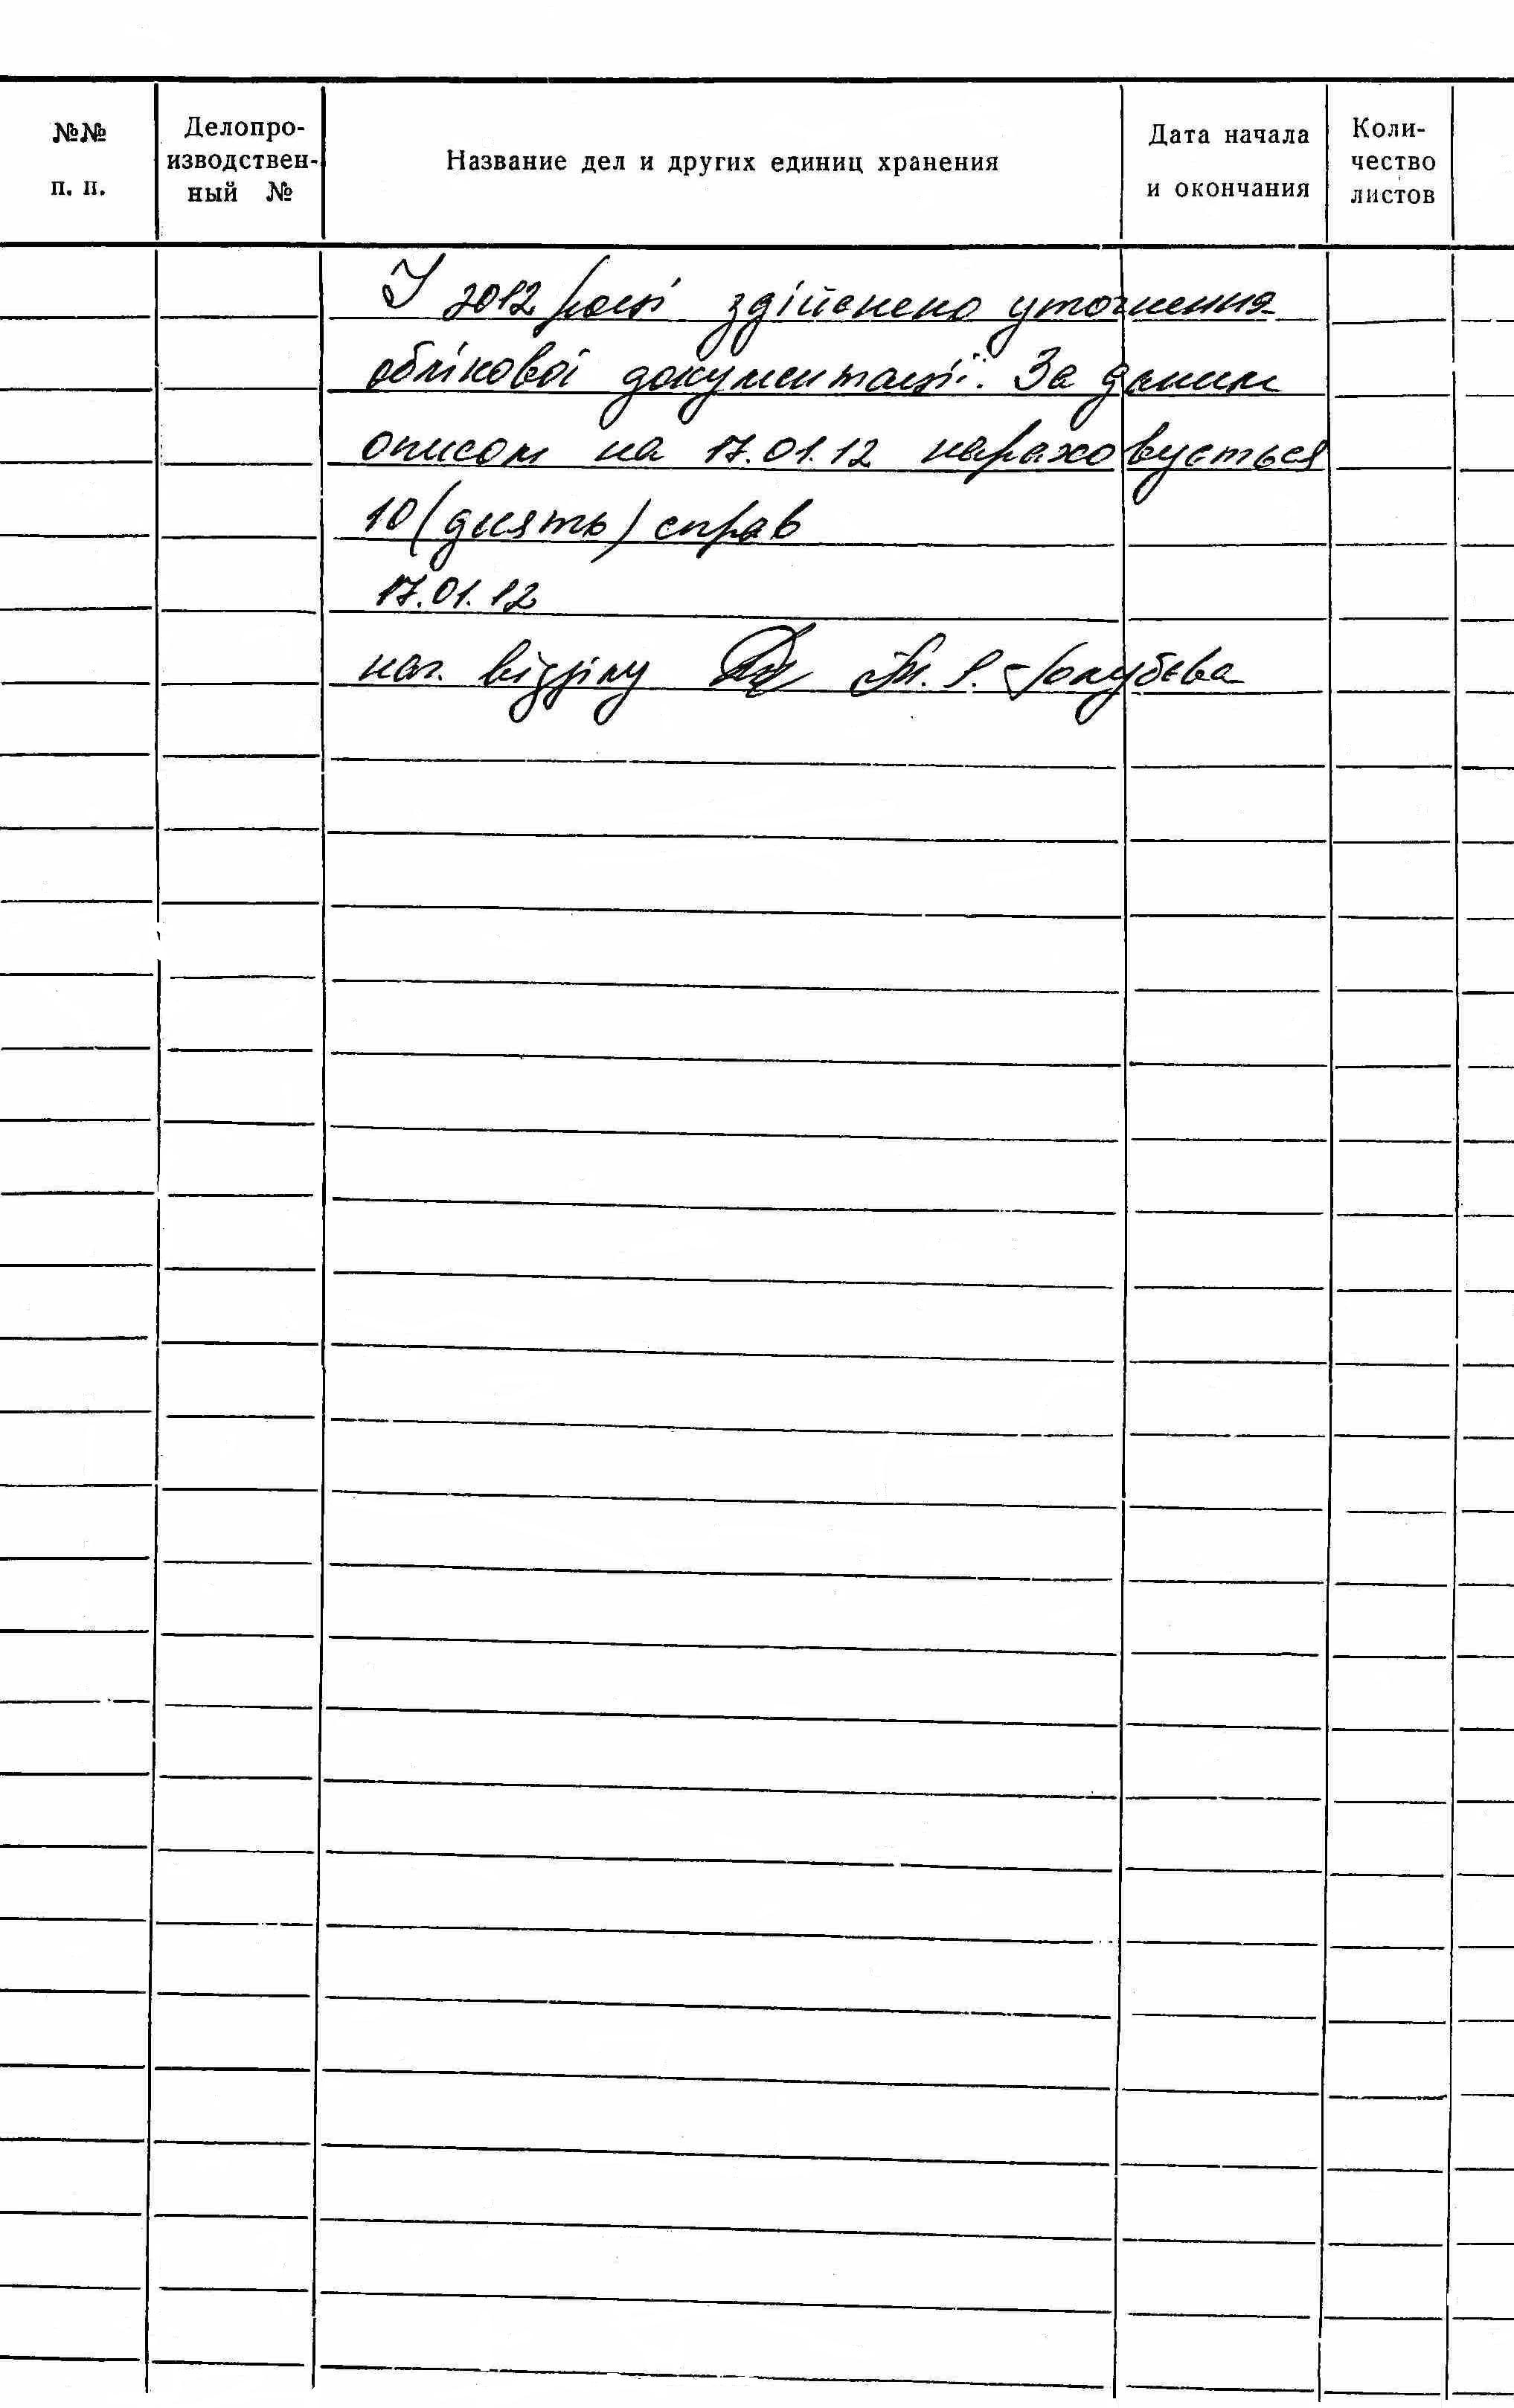 №№ п. п.
Делопро-
изводствен-
ный №
Название дел и других единиц хранения
Дата начала
и окончания
Коли-
чество
листов
У 2012 році здійснено уточнення
облікової документації. За даним
описом на 17.01.12 нараховується
10 (десять) справ
17.01.12
нач. відділу Голубєва